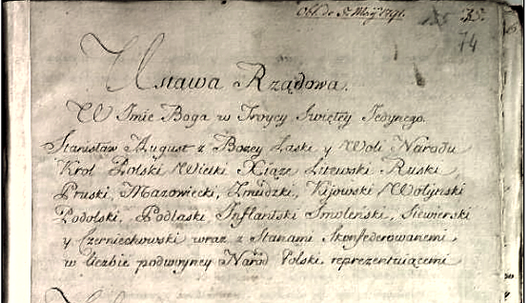 Obl. de 5ta Maÿ 1791.
74
Ustawa Rządowa.
W Imie Boga w Troycy Swiętey Jedynego.
Stanisław August z Bożey Łaski y Woli Narodu
Krol Polski Wielki Xiąże Litewski, Ruski
Pruski, Mazowiecki, Zmudzki, Kijowski Wołyński
Podolski, Podlaski Inflantski Smoleński, Siewierski
y Czerniechowski wraz z Stanami Skonfederowanemi
w liczbie podwoyney Naród Polski reprezentuiącemi